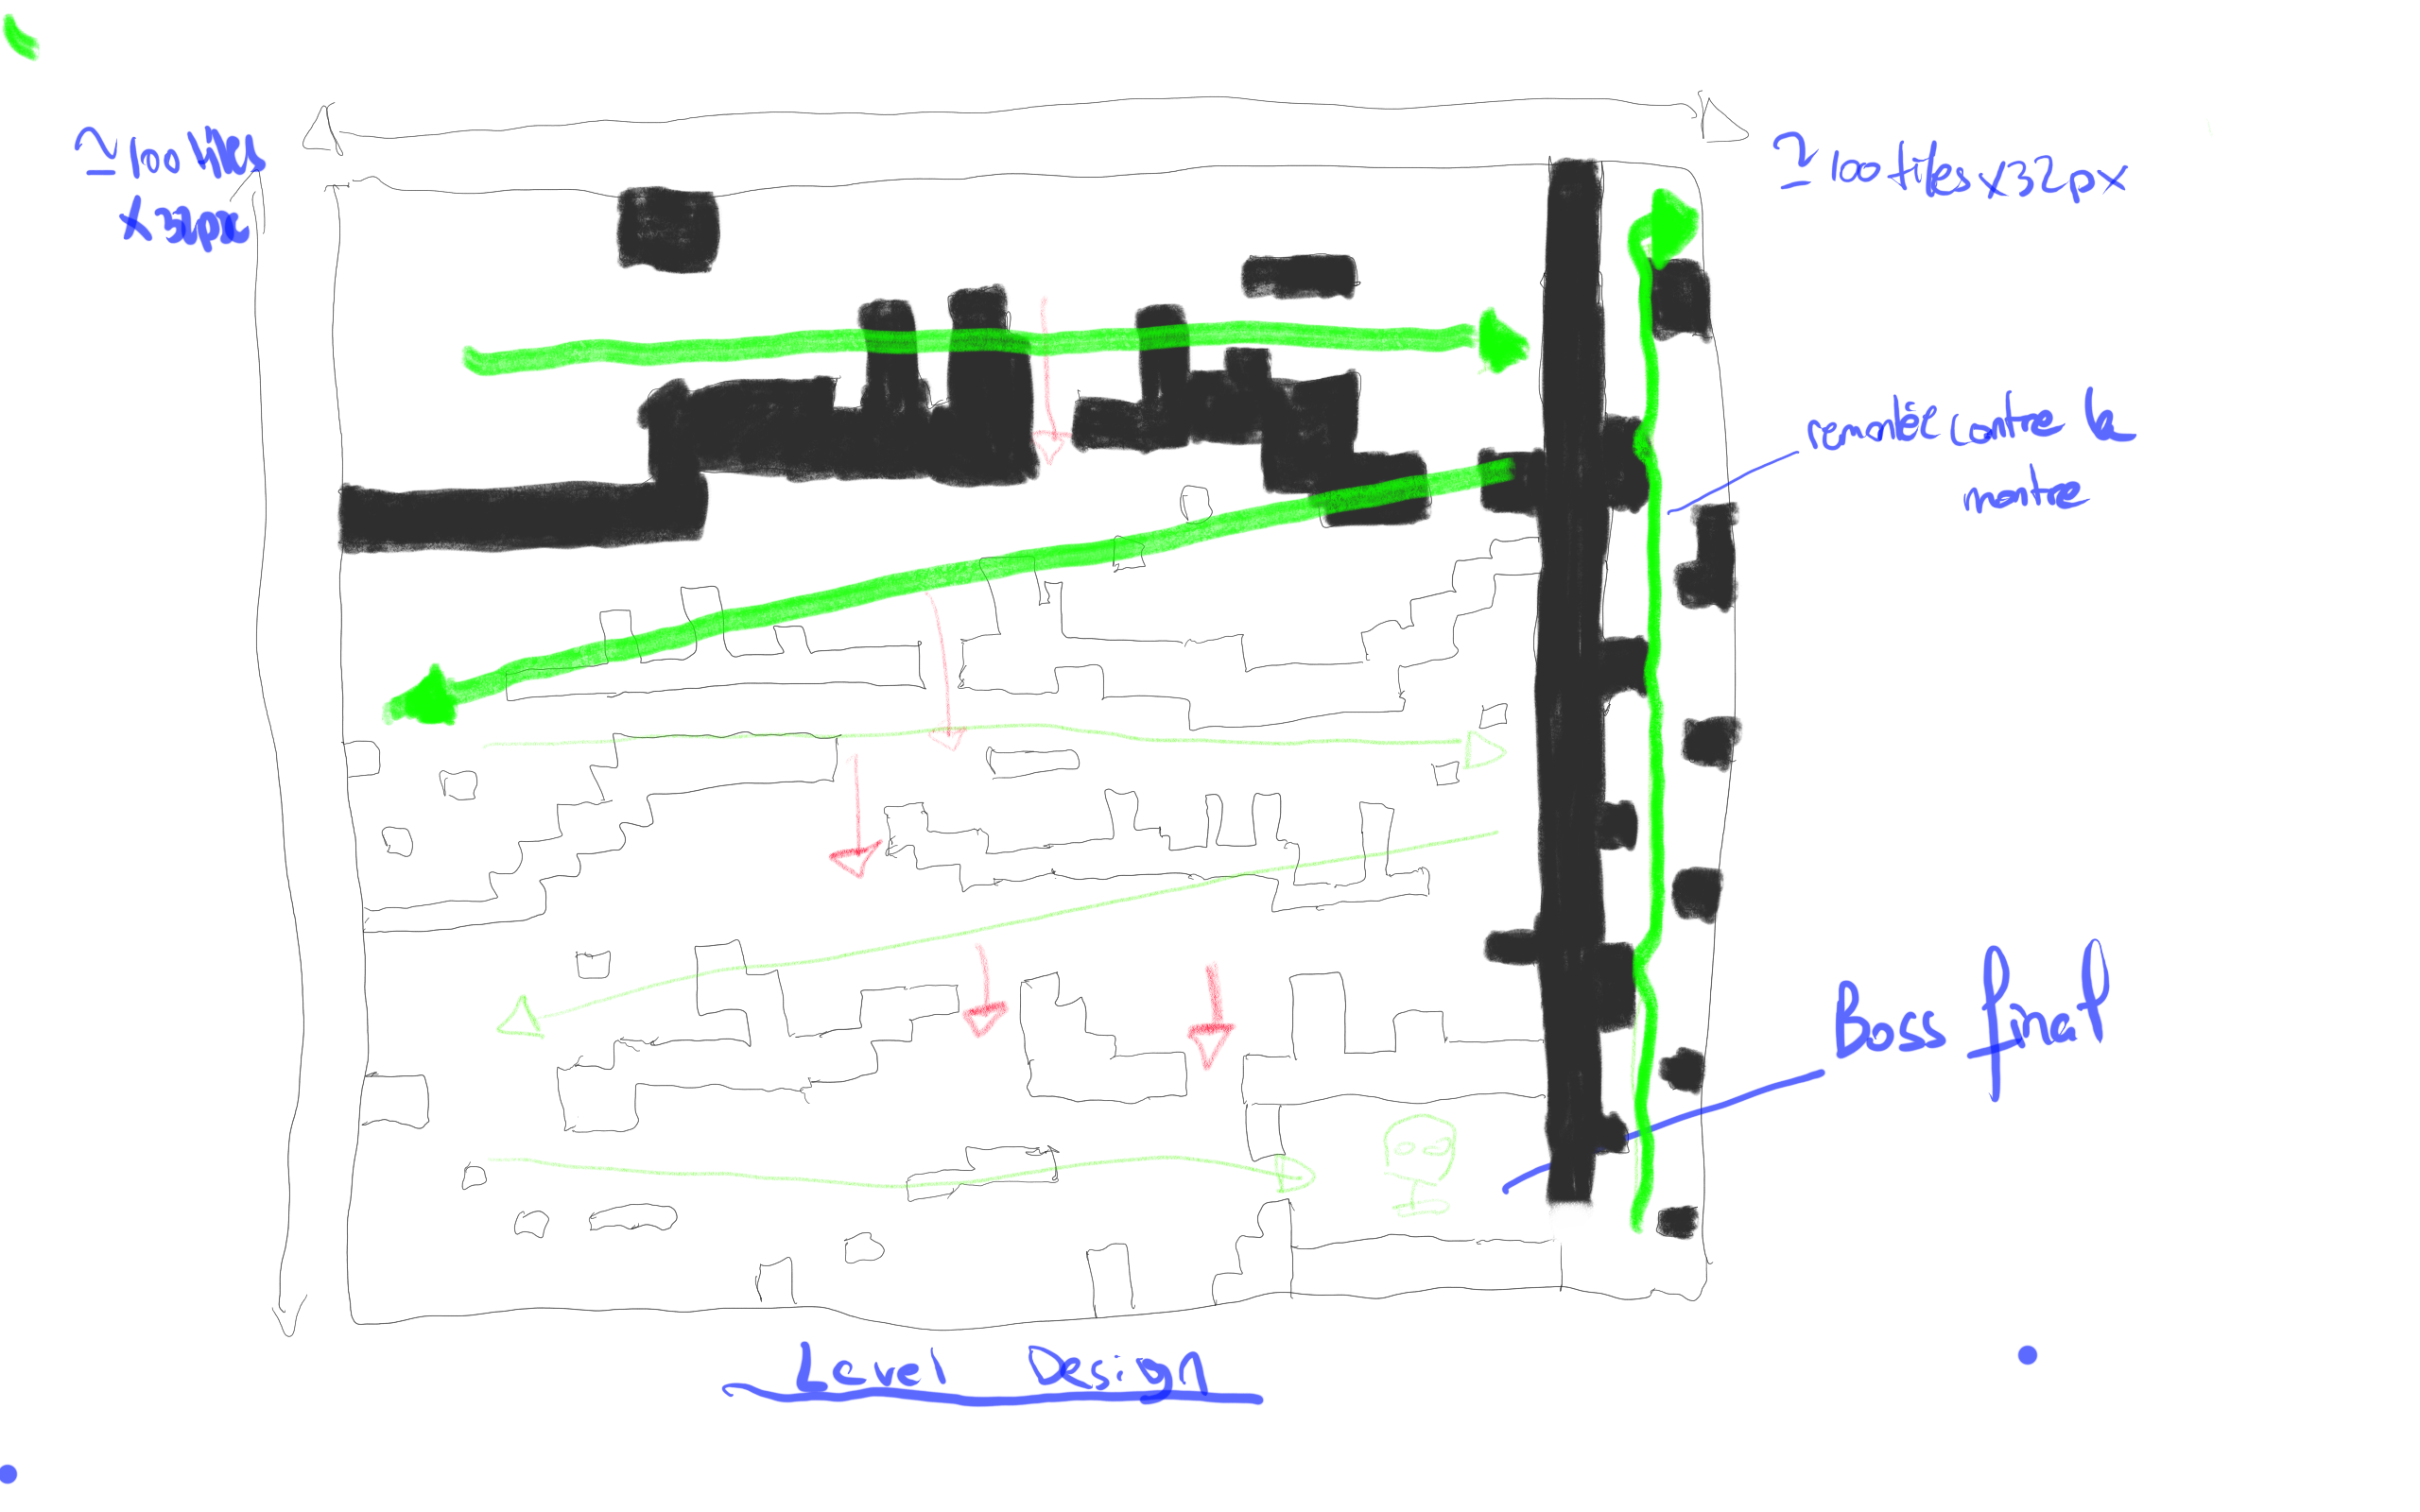 ≃100 tiles
x32px
≃100 tiles x32px
remontée contre la
montre
Boss final
Level Design